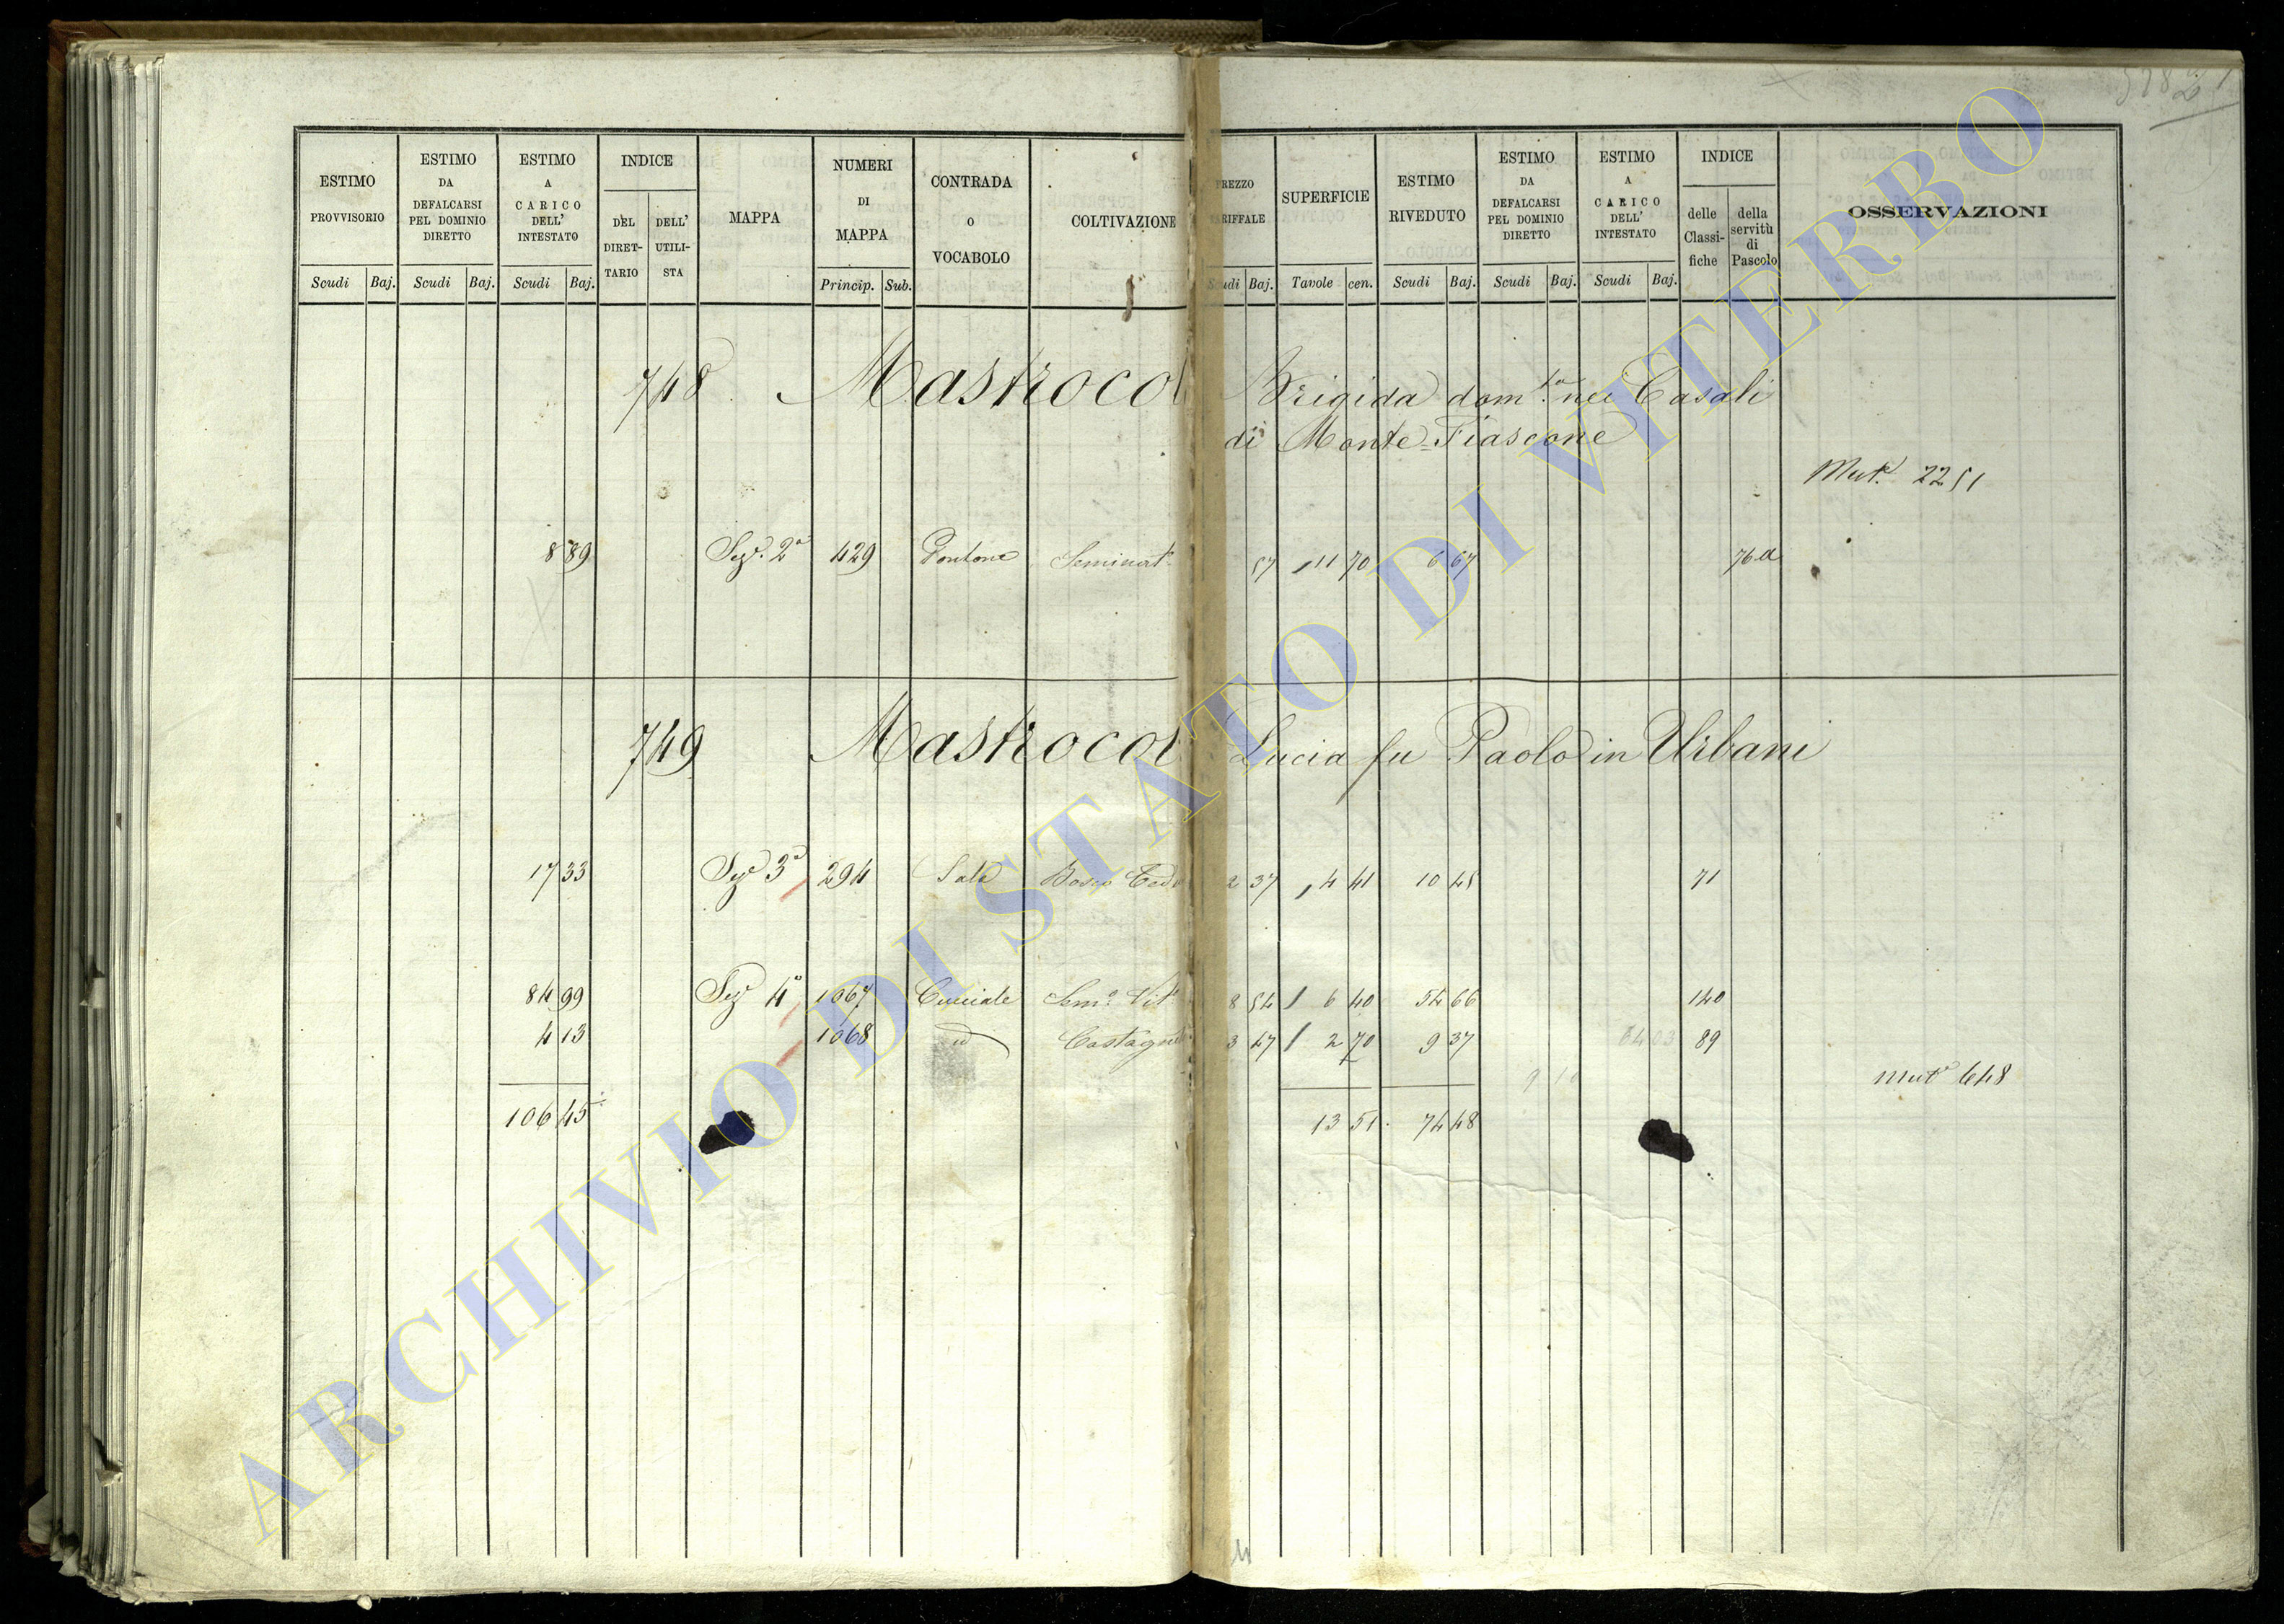 ESTIMO PROVVISORIO
Scudi Baj.
ESTIMO DA DEFALCARSI PEL DOMINIO DIRETTO
Scudi Baj.
ESTIMO A CARICO DELL' INTESTATO
Scudi Baj.
INDICE
DEL DIRET-TARIO
DELL' UTILI-STA
MAPPA
NUMERI DI MAPPA
Princip. Sub.
CONTRADA O VOCABOLO
COLTIVAZIONE
PREZZO TARIFFALE
Scudi Baj.
SUPERFICIE
Tavole cen.
ESTIMO RIVEDUTO
Scudi Baj.
ESTIMO DA DEFALCARSI PEL DOMINIO DIRETTO
Scudi Baj.
ESTIMO A CARICO DELL' INTESTATO
Scudi Baj.
INDICE
delle Classi-fiche
della servitù di Pascolo
OSSERVAZIONI
748 Mastrocol Brigida dom.ta nei Casali
di Monte-Fiascone
Mut.e 2251
8 89 Sez.e 2a 429 Pontone Seminat. 57 11 70 6 67 76 a
749 Mastrocol Lucia fu Paolo in Urbani
17 33 Sez.e 3a 294 Sala Bosco Ced 2 37 4 41 10 45 71
84 99 Sez.e 4a 1067 Cucciale Sem.o Vit. 8 54 6 40 54 66 140
4 13 1068 id Castagnet 3 47 2 70 9 37 64 03 89
mut.e 648
106 45 13 51 74 48
ARCHIVIO DI STATO DI VITERBO